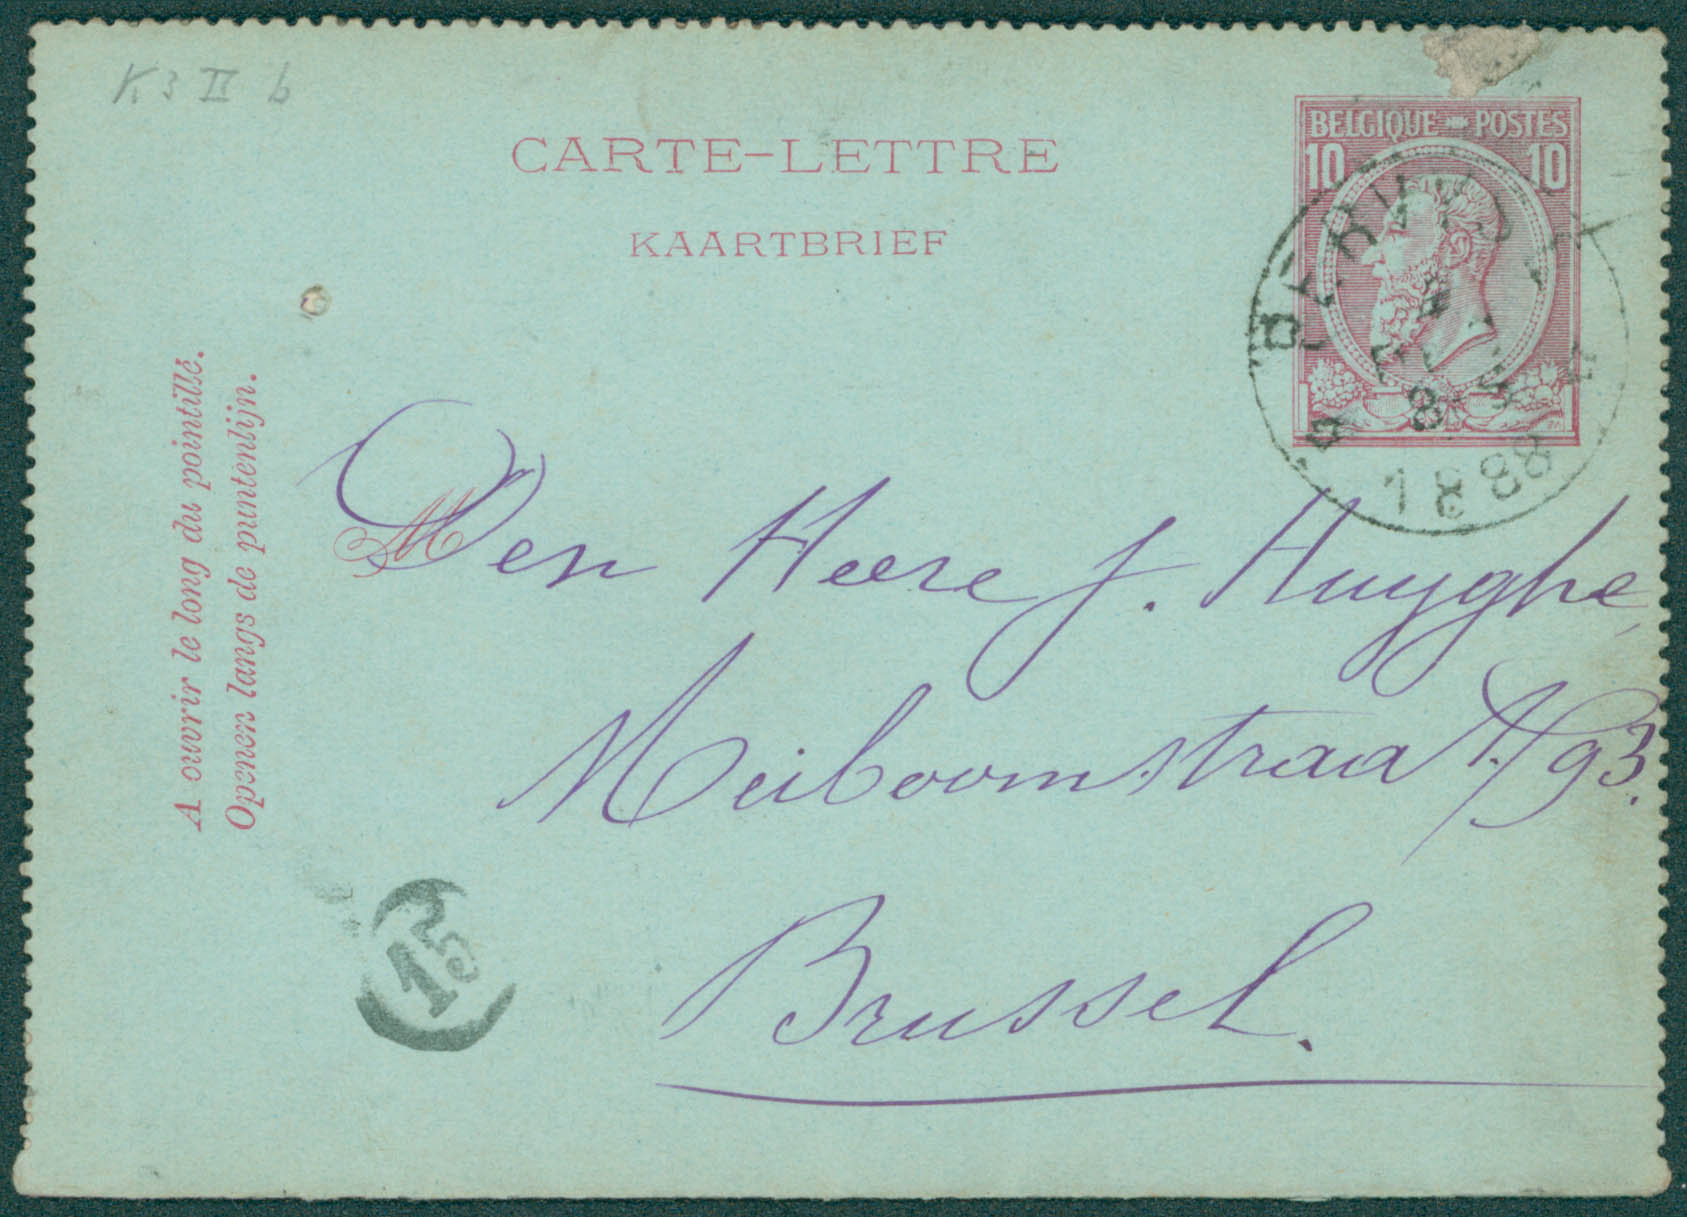 K 3 II b
CARTE-LETTRE
KAARTBRIEF
BELGIQUE POSTES
10 10
1888
A ouvrir le long du pointillé.
Openen langs de puntenlijn.
M
Den Heere J. Huyghe,
Meiboomstraat. 93.
Brussel.
15